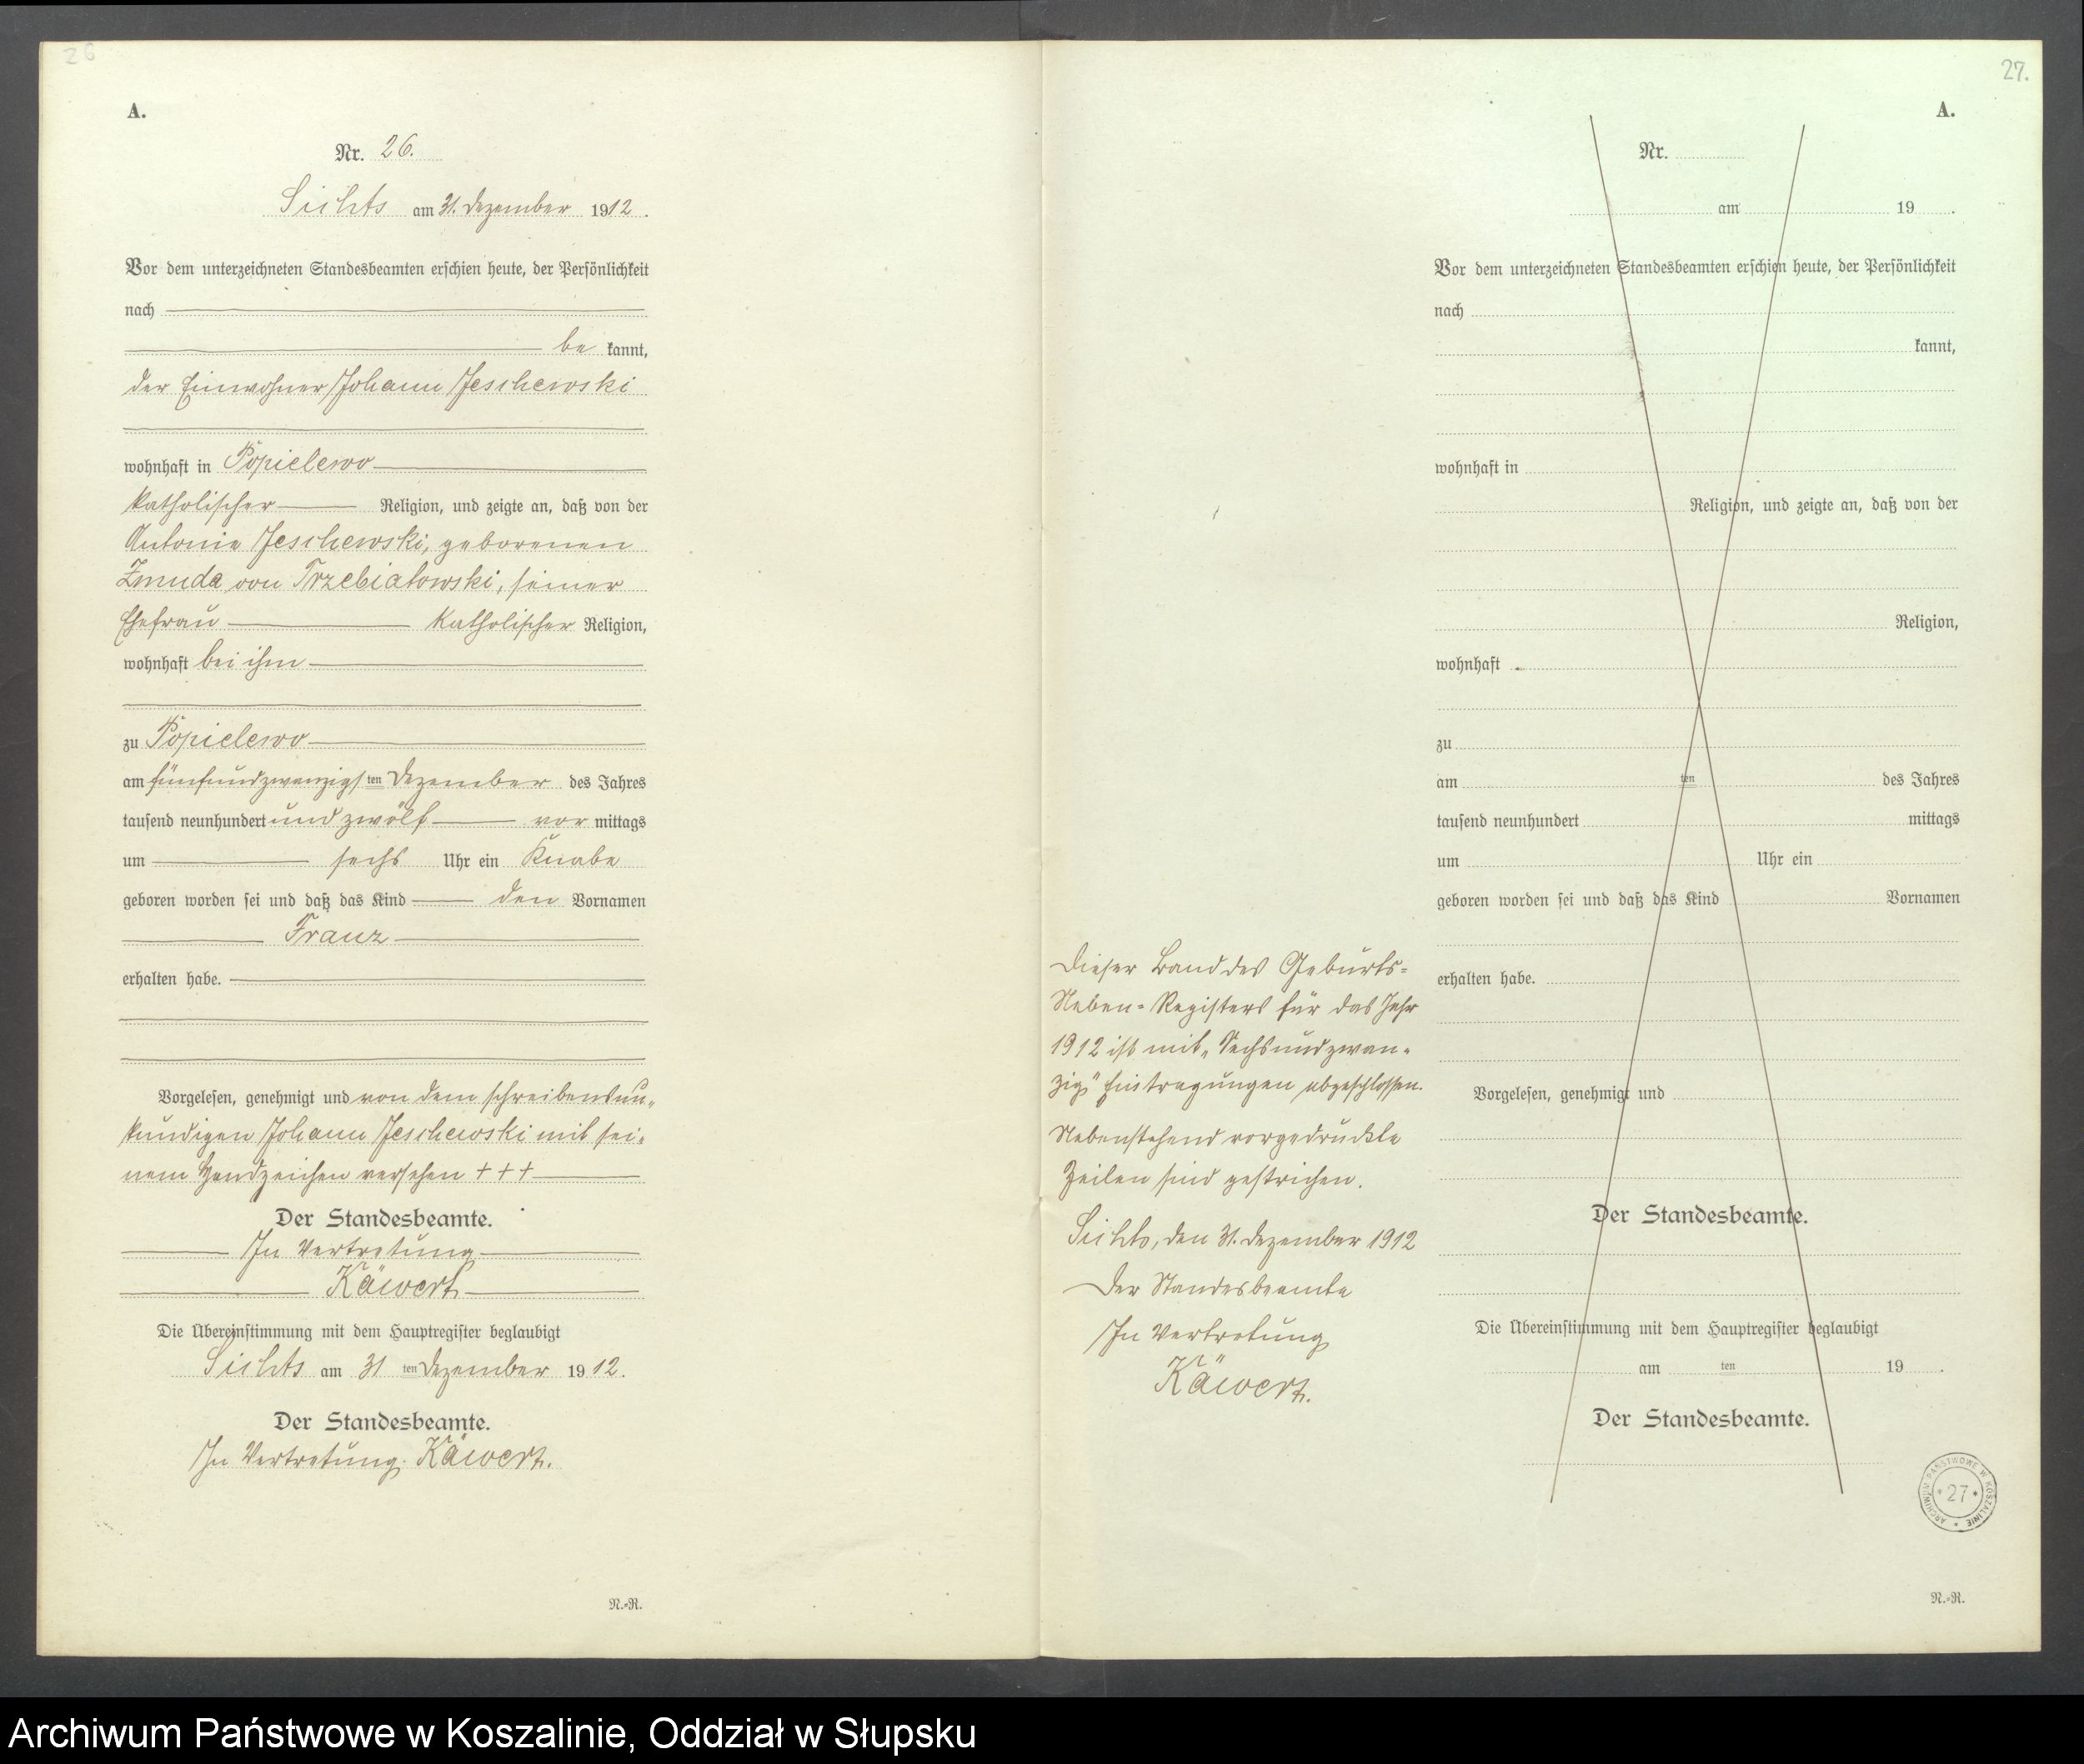 26
A.
Nr. 26.
Sichts am 31. Dezember 1912.
Vor dem unterzeichneten Standesbeamten erschien heute, der Persönlichkeit
nach
be kannt,
der Einwohner Johann Jeschewski
wohnhaft in Popielewo
katholischer Religion, und zeigte an, daß von der
Antonie Jeschewski, geborenen
Zmuda von Trzebiatowski, seiner
Ehefrau katholischer Religion,
wohnhaft bei ihm
zu Popielewo
am fünfundzwanzigsten Dezember des Jahres
tausend neunhundert und zwölf vor mittags
um sechs Uhr ein Knabe
geboren worden sei und daß das Kind den Vornamen
Franz
erhalten habe.
Vorgelesen, genehmigt und von dem schreibensun-
kundigen Johann Jeschewski mit sei-
nem Handzeichen versehen +++
Der Standesbeamte.
In Vertretung
Käwert.
Die Übereinstimmung mit dem Hauptregister beglaubigt
Sichts am 31 ten Dezember 1912.
Der Standesbeamte.
In Vertretung. Käwert.
N.-R.
27.
A.
Nr.
am 19 .
Vor dem unterzeichneten Standesbeamten erschien heute, der Persönlichkeit
nach
kannt,
wohnhaft in
Religion, und zeigte an, daß von der
Religion,
wohnhaft
zu
am ten des Jahres
tausend neunhundert mittags
um Uhr ein
geboren worden sei und daß das Kind Vornamen
erhalten habe.
Vorgelesen, genehmigt und
Der Standesbeamte.
Die Übereinstimmung mit dem Hauptregister beglaubigt
am ten 19 .
Der Standesbeamte.
Dieser Band des Geburts-
Neben-Registers für das Jahr
1912 ist mit „Sechsundzwan-
zig" Eintragungen abgeschlossen.
Nebenstehend vorgedruckte
Zeilen sind gestrichen.
Sichts, den 31. Dezember 1912
Der Standesbeamte
In Vertretung
Käwert.
ARCHIWUM PAŃSTWOWE W KOSZALINIE
* 27 *
N.-R.
Archiwum Państwowe w Koszalinie, Oddział w Słupsku